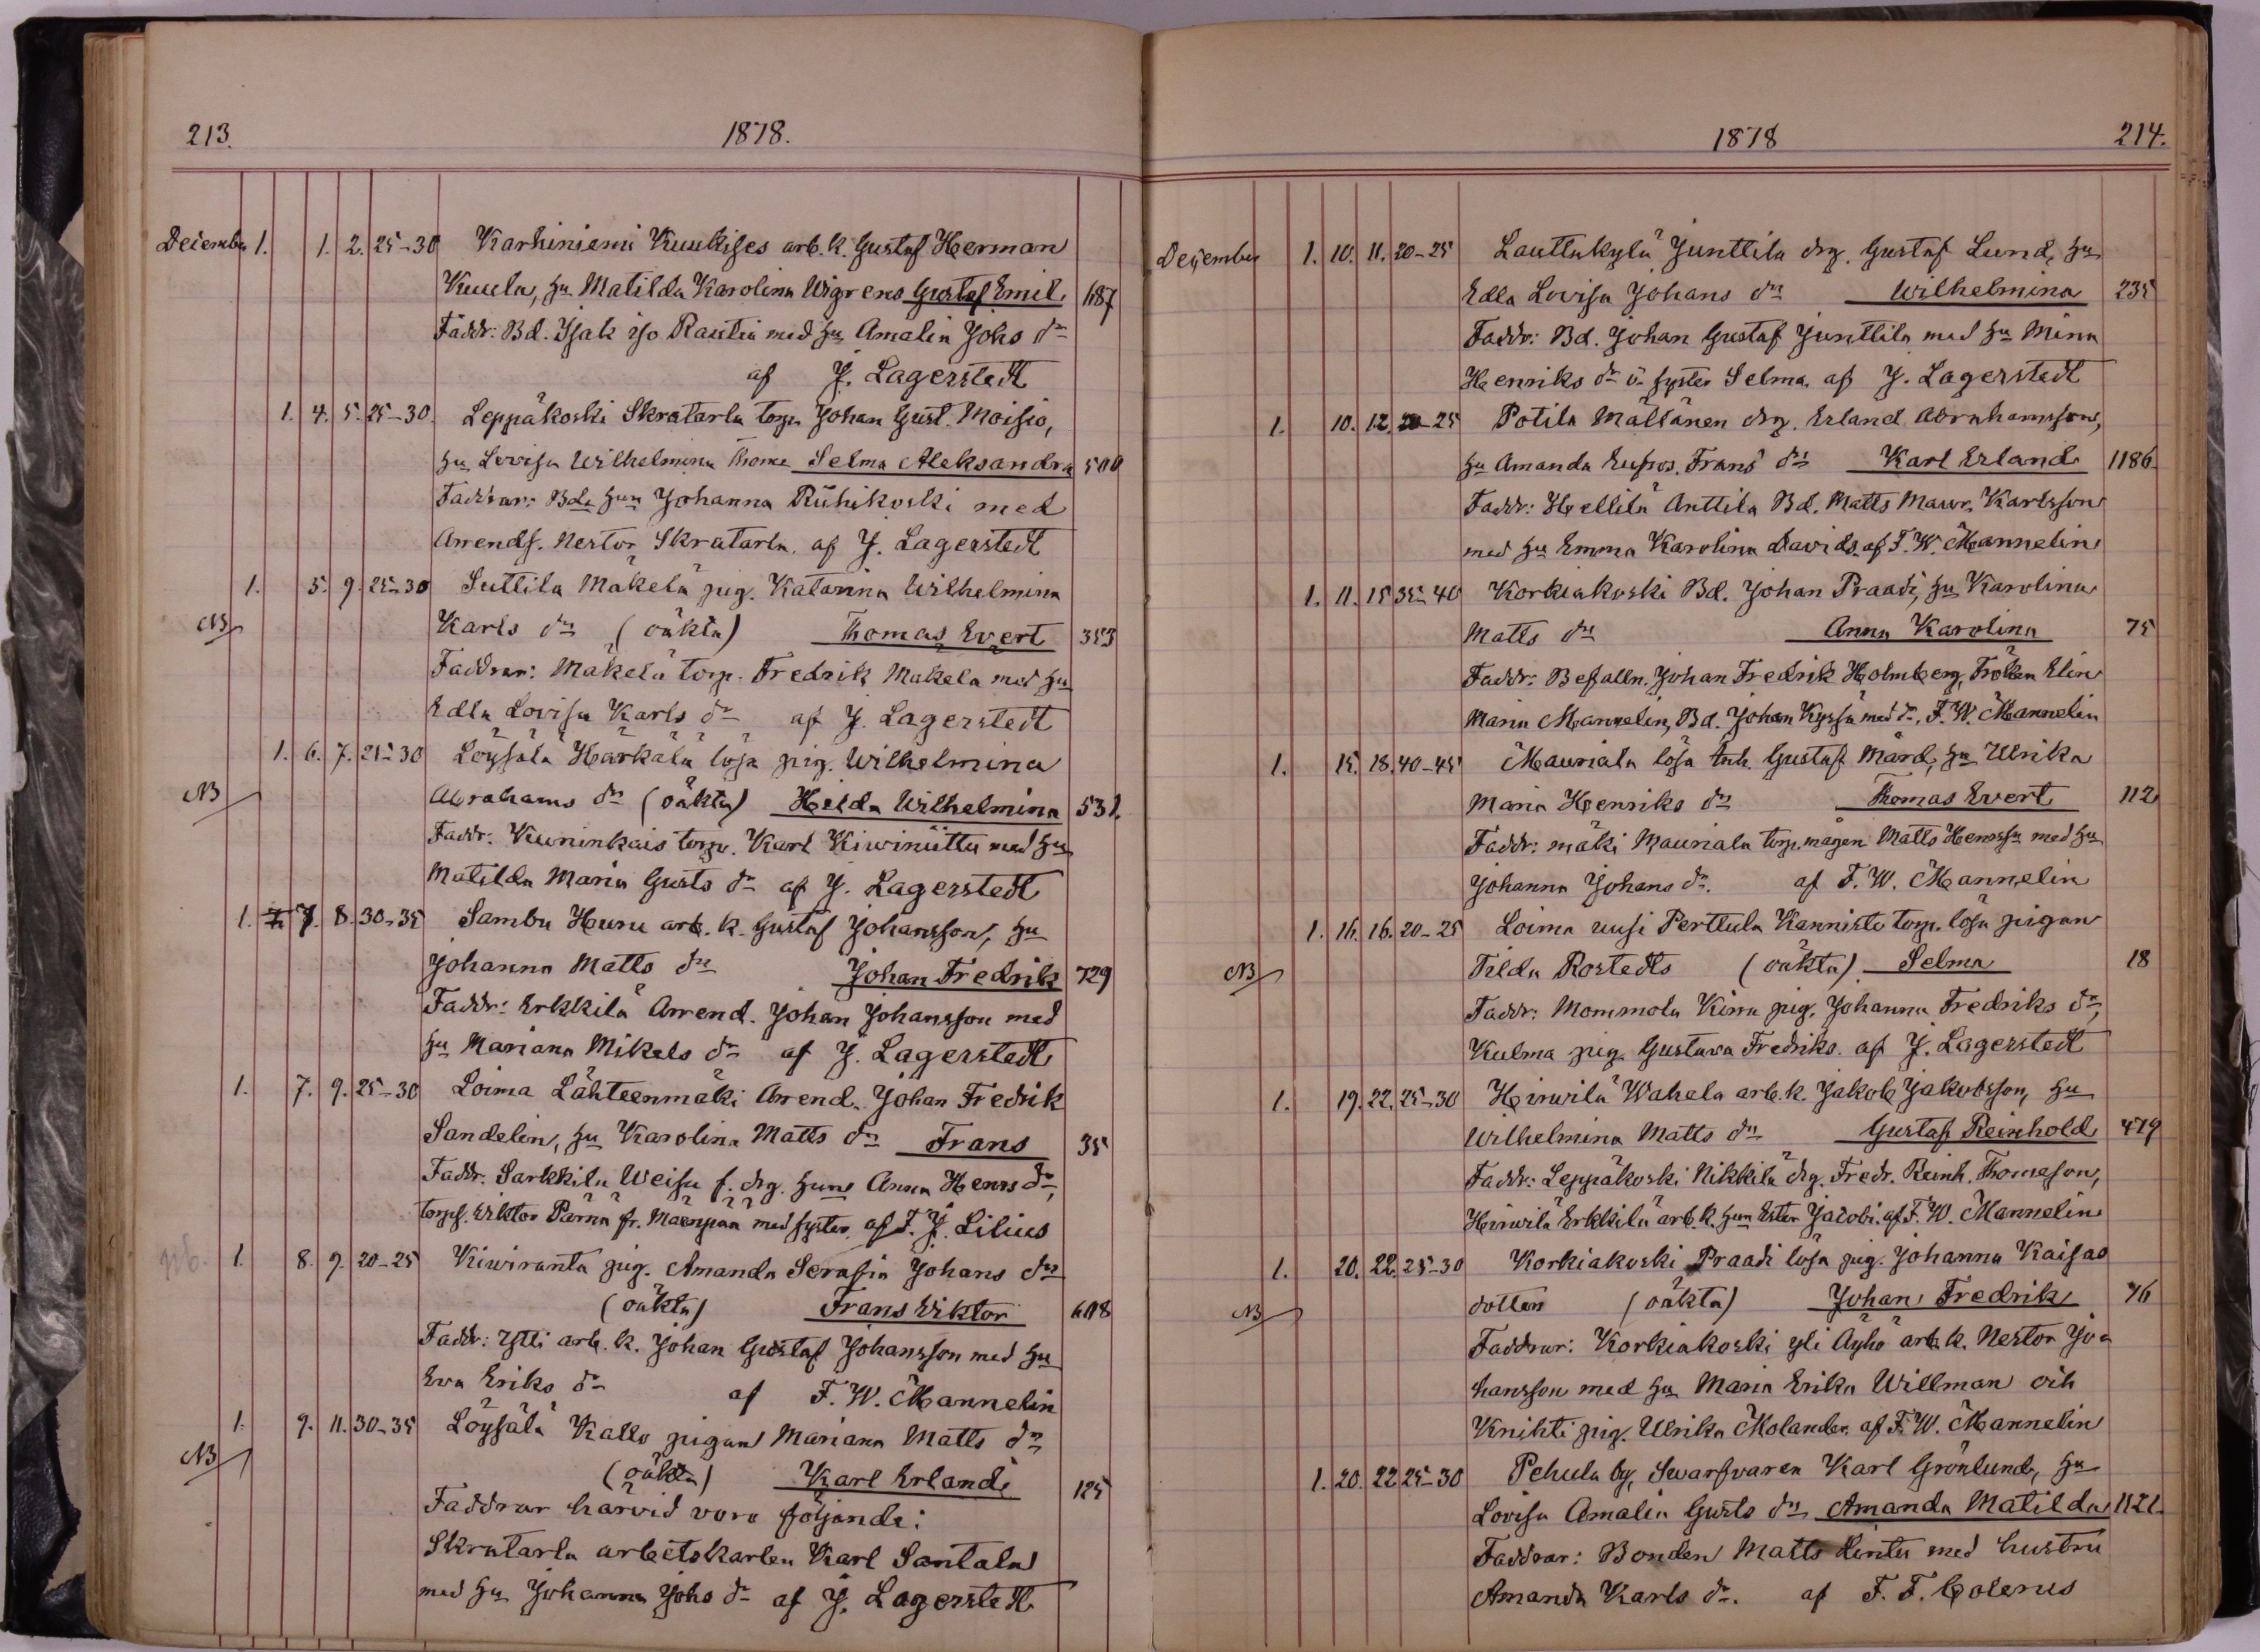 213. 1878.
December 1. 1. 2. 25-30 Karhiniemi Kuukises arb. k. Gustaf Herman
Kuula, hu Matilda Karolina Wigrens Gustaf Emil 1187
Faddr: Bd. Isak iso Rautia med hu Amalia Johs dr
af J. Lagerstedt
1. 4. 5. 25-30. Leppäkoski Skratarla torp. Johan Gust. Moisio,
hu Lovisa Wilhelmina Thoms Selma Aleksandra 500
Faddrar: Bde hun Johanna Riihikoski med
Arrends. Nestor Skratarla. af J. Lagerstedt
1. 5. 9. 25-30 Suttila Mäkelä pig. Katarina Wilhelmina
NB Karls dr (oäkta) Thomas Evert 353
Faddrar: Mäkelä torp. Fredrik Makela med hu
Edla Lovisa Karls dr af J. Lagerstedt
1. 6. 7. 25-30 Löysälä Härkälä lösa pig. Wilhelmina
NB Abrahams dr (oäkta) Helda Wilhelmina 531.
Faddr: Kuninkais torp. Karl Kiviniitty med hu
Matilda Maria Gusts dr af J. Lagerstedt
1. 7. 8. 30-35 Sambu Huru arb. k. Gustaf Johansson, hu
Johanna Matts dr Johan Fredrik 729
Faddr: Erkkilä Arrend. Johan Johansson med
hu Mariana Mikels dr af J. Lagerstedt
1. 7. 9. 25-30 Loima Lähteenmäki Arrend. Johan Fredrik
Sandelin, hu Karolina Matts dr Frans 35
Faddr. Sarkkila Weisu f. drg. huns Anna Henrs dr,
torps. Wiktor Pärnä fr. Mäenpää med syster. af F. J. Lilius
nb. 1. 8. 9. 20-25 Kiwiranta pig. Amanda Serafia Johans dr
(oäkta) Frans Wiktor 608
Faddr: Ylli arb. k. Johan Gustaf Johansson med hu
Eva Eriks dr af F. W. Mannelin
1. 9. 11. 30-35 Löysälä Kallo pigan Mariana Matts dr
NB (oäkta) Karl Erland 125
Faddrar härvid voro följande:
Skratarla arbetskarlen Karl Santala
med hu Johanna Johs dr af J. Lagerstedt
1878 214.
December 1. 10. 11. 20-25 Lauttakylä Junttila drg. Gustaf Lund, hu
Edla Lovisa Johans dr Wilhelmina 235
Faddr: Bd. Johan Gustaf Junttila med hu Minna
Henriks dr o. syster Selma. af J. Lagerstedt
1. 10. 12. 20-25 Potila Mällänen drg. Erland Abrahamsson,
hu Amanda Eufros. Frans dr Karl Erland 1186
Faddr: Hellilä Anttila Bd. Matts Maur. Karlsson
med hu Emma Karolina Davids. af F. W. Mannelin
1. 11. 15 35-40 Korkiakoski Bd. Johan Praadi, hu Karolina
Matts dr Anna Karolina 75
Faddr: Befalln. Johan Fredrik Holmberg, Fröken Elin
Maria Mannelin, Bd. Johan Kyssä med dr. F. W. Mannelin
1. 15. 18. 40-45 Mauriala lösa Inh. Gustaf Mård, hu Ulrika
Maria Henriks dr Thomas Evert 112
Faddr: mäki Mauriala torp. mågen Matts Henrssn med hu
Johanna Johans dr. af F. W. Mannelin
1. 16. 16. 20-25 Loima uusi Perttula Kannisto torp. lösa pigan
NB Tilda Rostedts (oäkta) Selma 18
Faddr: Mommola Kirra pig. Johanna Fredriks dr,
Kulma pig. Gustava Fredriks. af J. Lagerstedt
1. 19. 22. 25-30 Hirwilä Wahela arb. k. Jakob Jakobsson, hu
Wilhelmina Matts dr Gustaf Reinhold 479
Faddr: Leppäkoski Nikkilä drg. Fredr. Reinh. Thomasson,
Hirwilä Erkkilä arb. k. hun Ester Jacobi. af F. W. Mannelin
1. 20. 22. 25-30 Korkiakoski Praadi lösa pig. Johanna Kaisas
NB dotter (oäkta) Johan Fredrik 76
Faddrar: Korkiakoski yli Äyhö arb. k. Nestor Jo-
hansson med hu Maria Erika Willman och
Knihti pig. Ulrika Molander. af F. W. Mannelin
1. 20. 22 25-30 Pehula by, Swarfvaren Karl Grönlund, hu
Lovisa Amalia Gusts dr Amanda Matilda 1121.
Faddrar: Bonden Matts Lintu med hustru
Amanda Karls dr. af F. F. Colerus